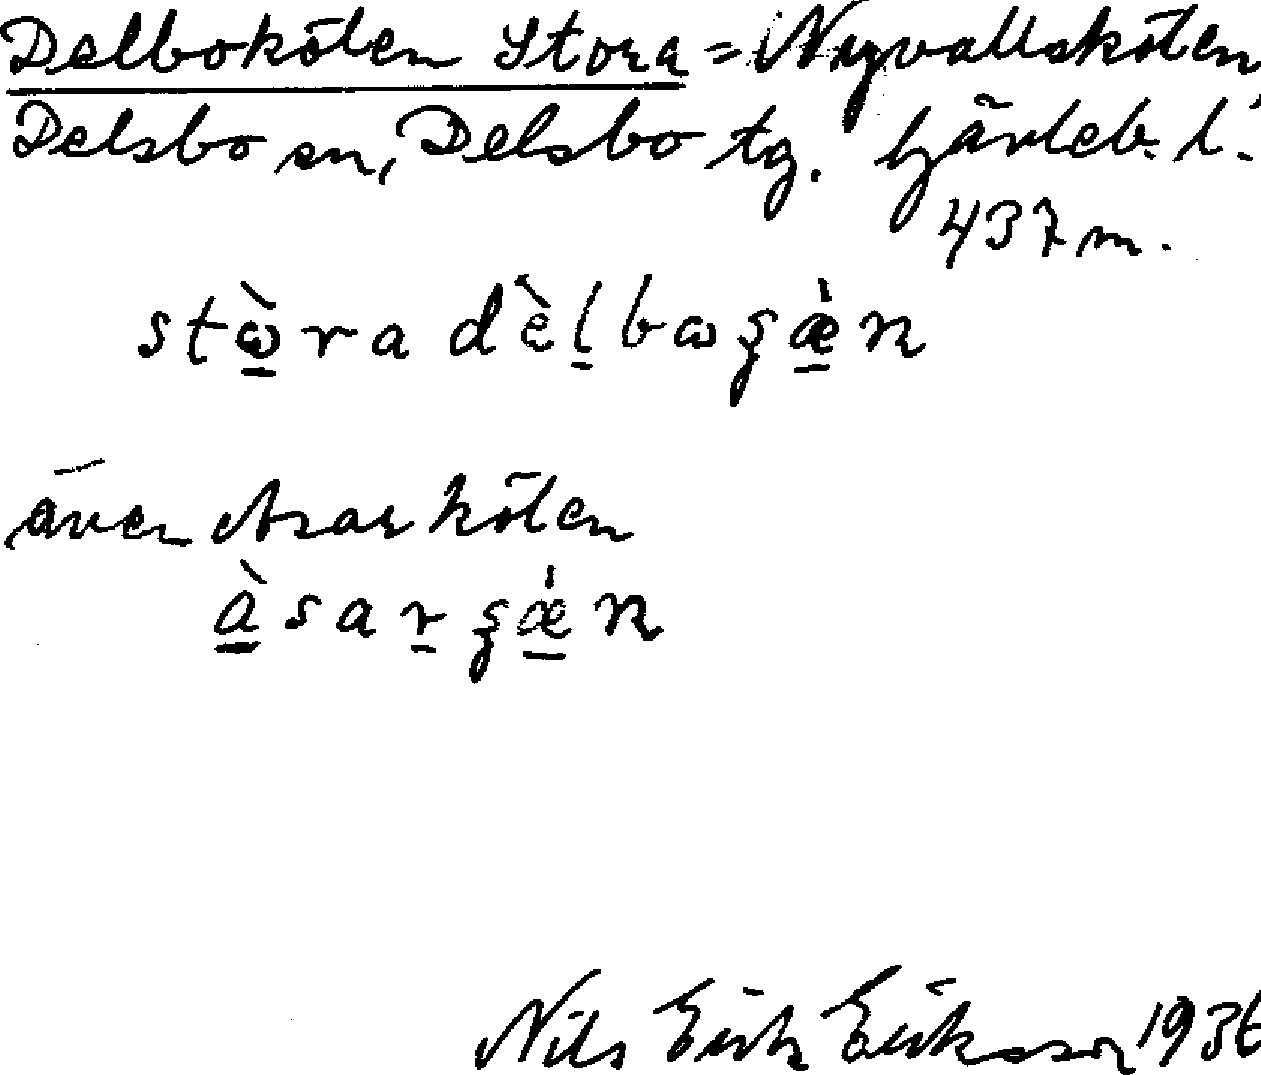 Delboköten Stora = Nyvallsköten
Delsbo sn, Delsbo tg. Gävleb. l.
437 m.
stὼra dèlbωʂæ̀n
även Asarköten
àsarʂæ̀n
Nils Erik Eriksson 1936